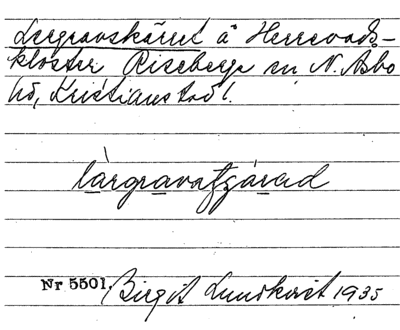 Lergravskärret å Herrevads-
kloster Riseberga sn N. Åsbo
hd, Kristianstad l.
lärgravaftjäred
Nr 5501. Birgit Lundkvist 1935